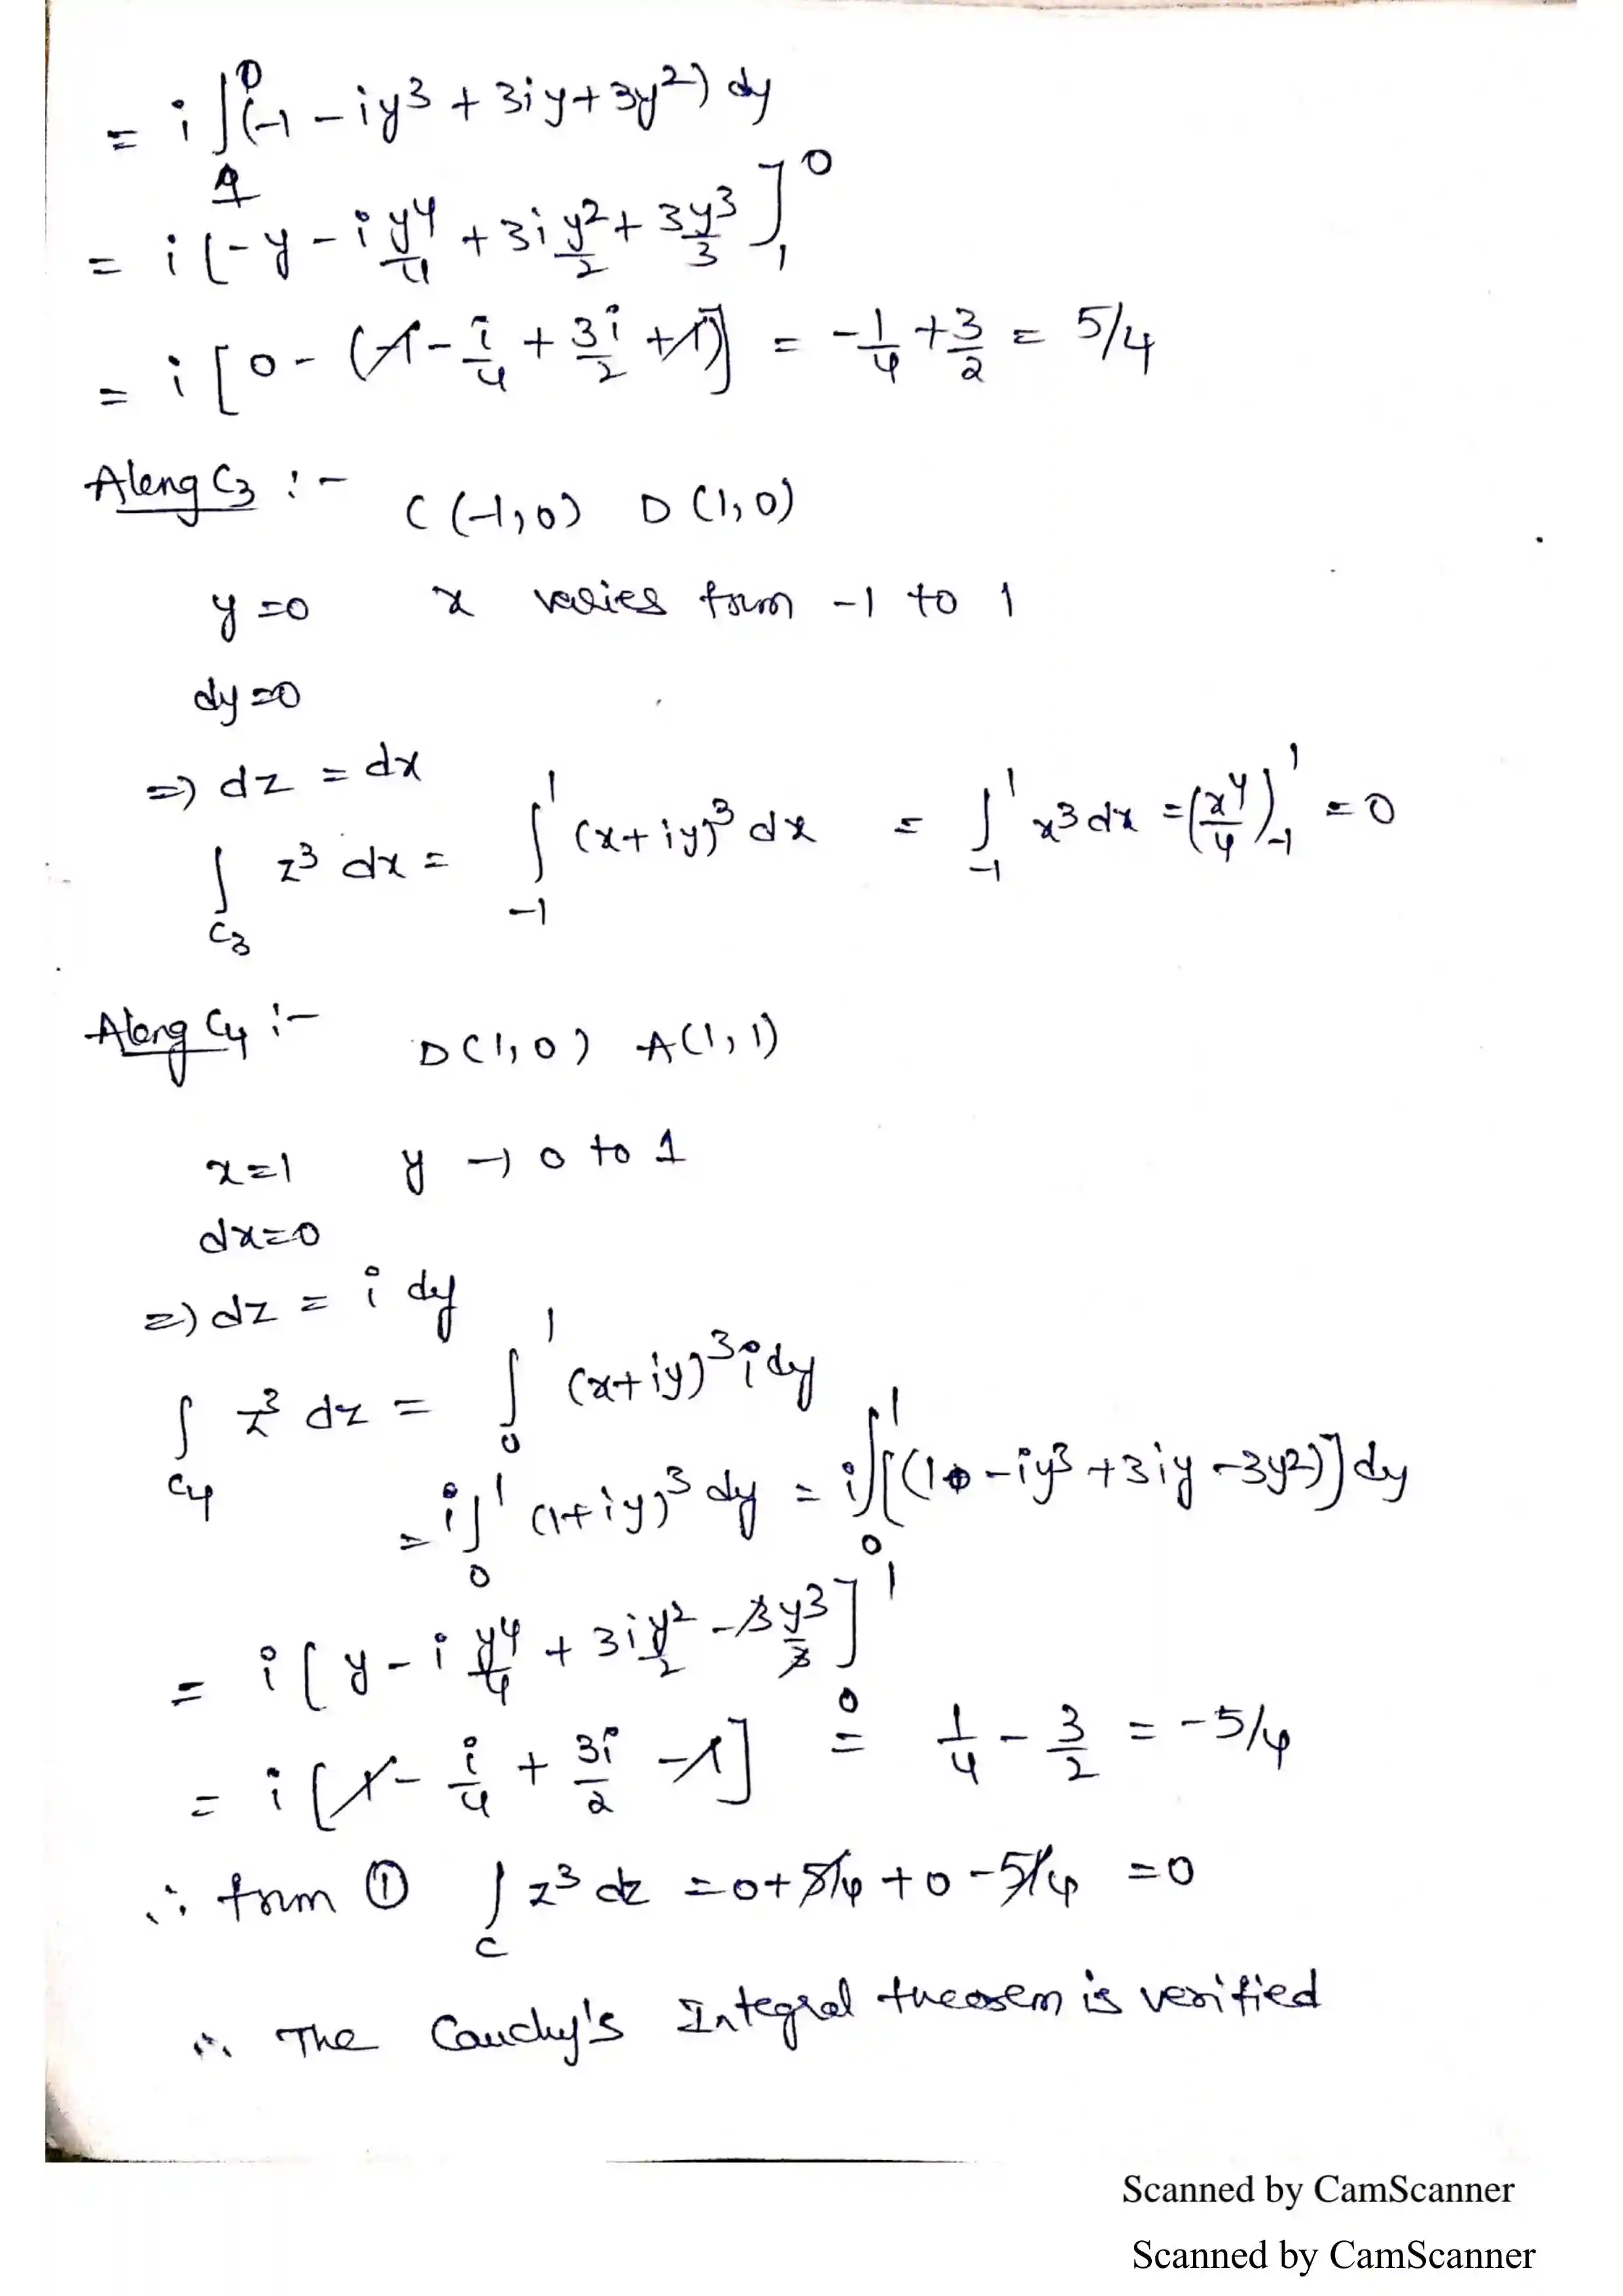 = i ∫₁⁰ (-1 - iy³ + 3iy + 3y²) dy
= i [-y - i y⁴/4 + 3i y²/2 + 3y³/3]₁⁰
= i [0 - (-1 - i/4 + 3i/2 + 1)] = -1/4 + 3/2 = 5/4
Along C₃ :- C (-1, 0) D (1, 0)
y = 0 x varies form -1 to 1
dy = 0
⇒) dz = dx
∫_C₃ z³ dx = ∫₋₁¹ (x+iy)³ dx = ∫₋₁¹ x³ dx = (x⁴/4)₋₁¹ = 0
Along C₄ :- D (1, 0) A (1, 1)
x = 1 y → 0 to 1
dx = 0
⇒) dz = i dy
∫_C₄ z³ dz = ∫₀¹ (x+iy)³ i dy
= i ∫₀¹ (1+iy)³ dy = i ∫₀¹ [(1 - iy³ + 3iy - 3y²)] dy
= i [y - i y⁴/4 + 3i y²/2 - 3y³/3]₀¹
= i [1 - i/4 + 3i/2 - 1] = 1/4 - 3/2 = -5/4
∴ form ① ∫_C z³ dz = 0 + 5/4 + 0 - 5/4 = 0
∴ The Cauchy's Integral theorem is verified
Scanned by CamScanner
Scanned by CamScanner